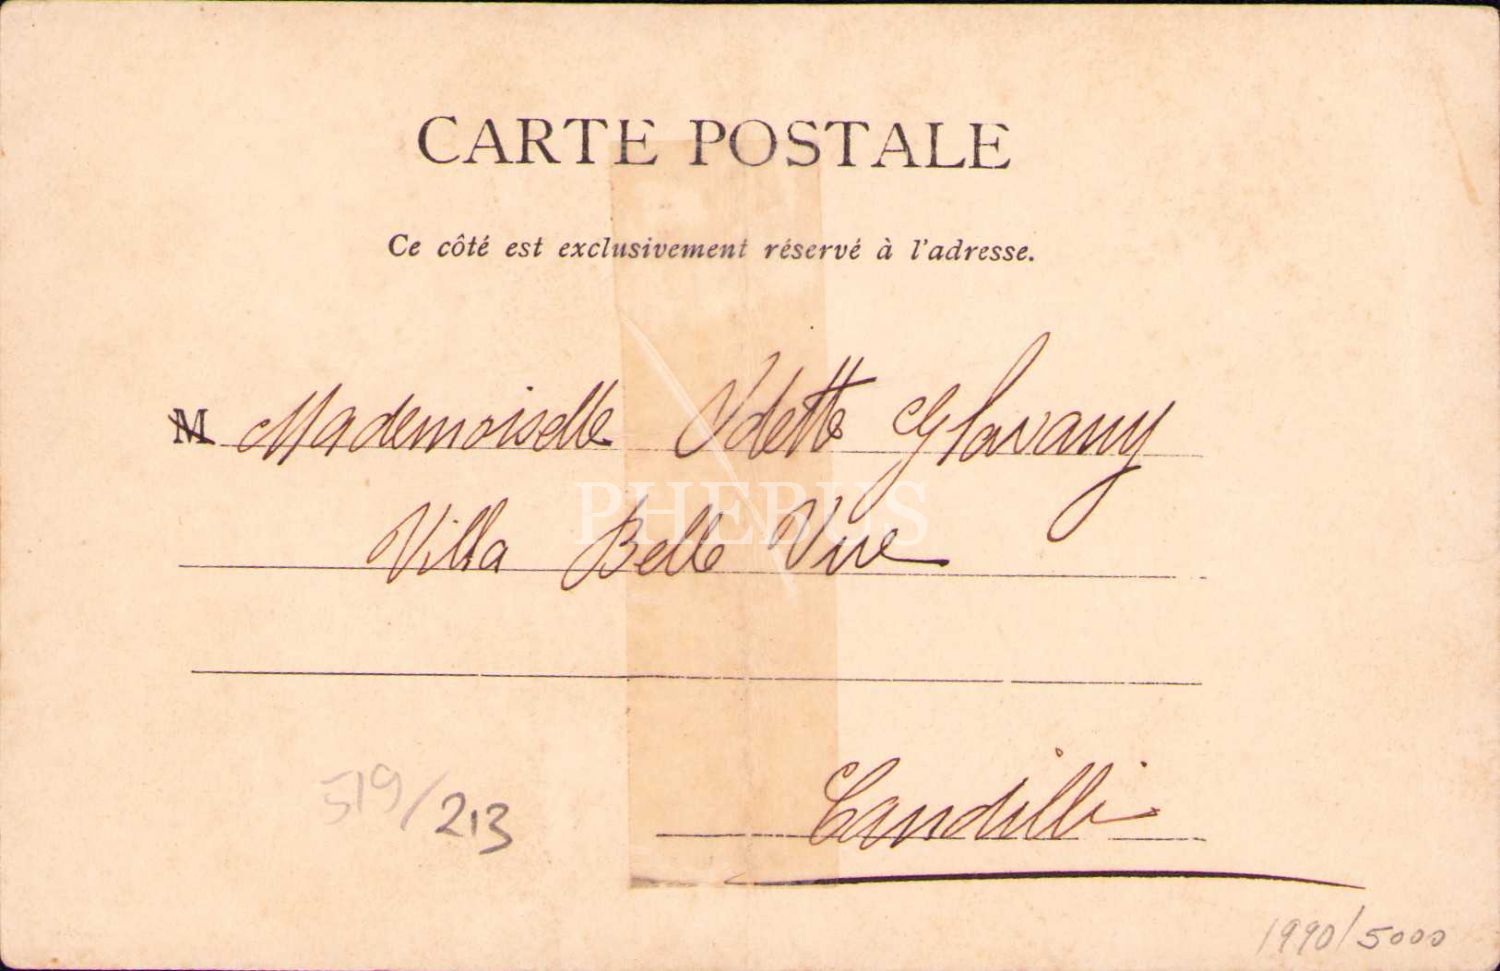 CARTE POSTALE
Ce côté est exclusivement réservé à l'adresse.
M Mademoiselle Odette Glavany
PHEBUS
Villa Belle Vue
Candilli
519/213
1990/5000